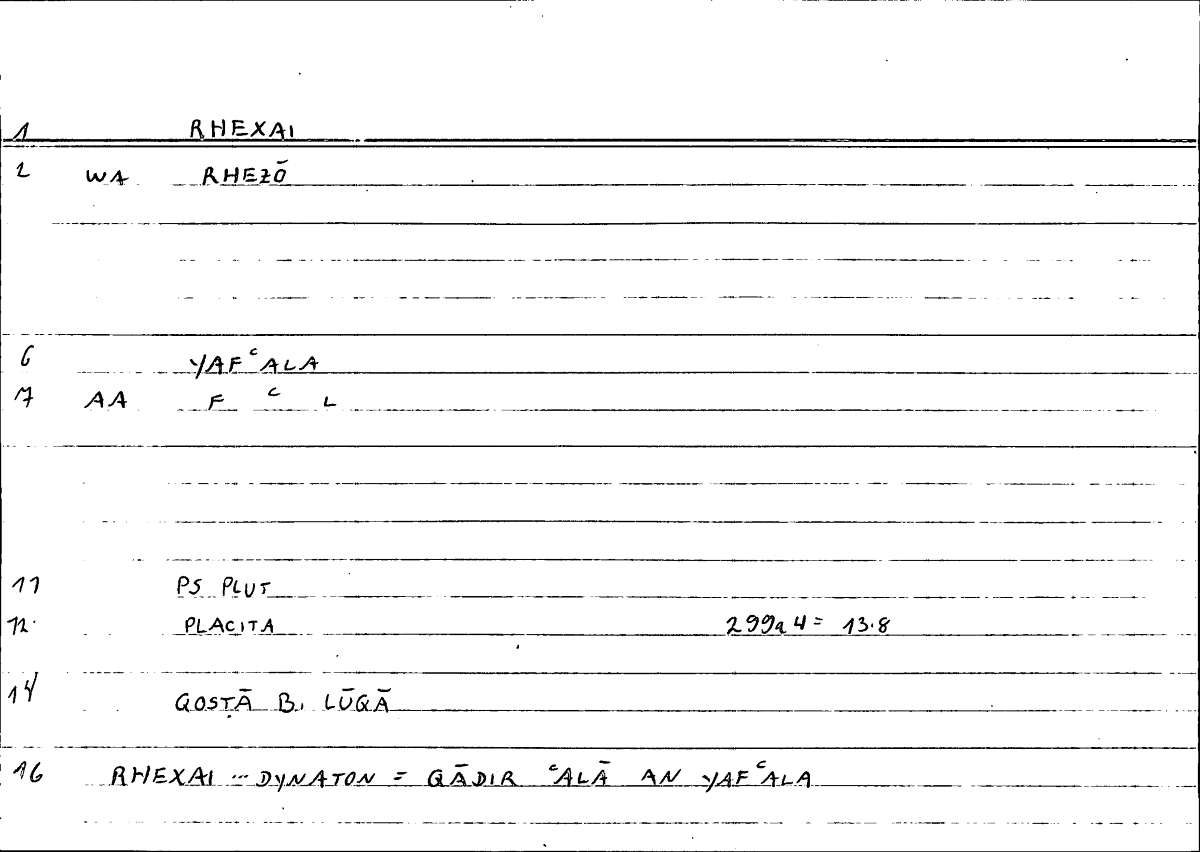 1 RHEXAI
2 WA RHEZŌ
6 YAFᶜALA
7 AA F ᶜ L
11 PS PLUT
12 PLACITA 299a 4 = 13.8
14 QOSṬĀ B. LŪQĀ
16 RHEXAI ... DYNATON = QĀDIR ᶜALĀ AN YAFᶜALA